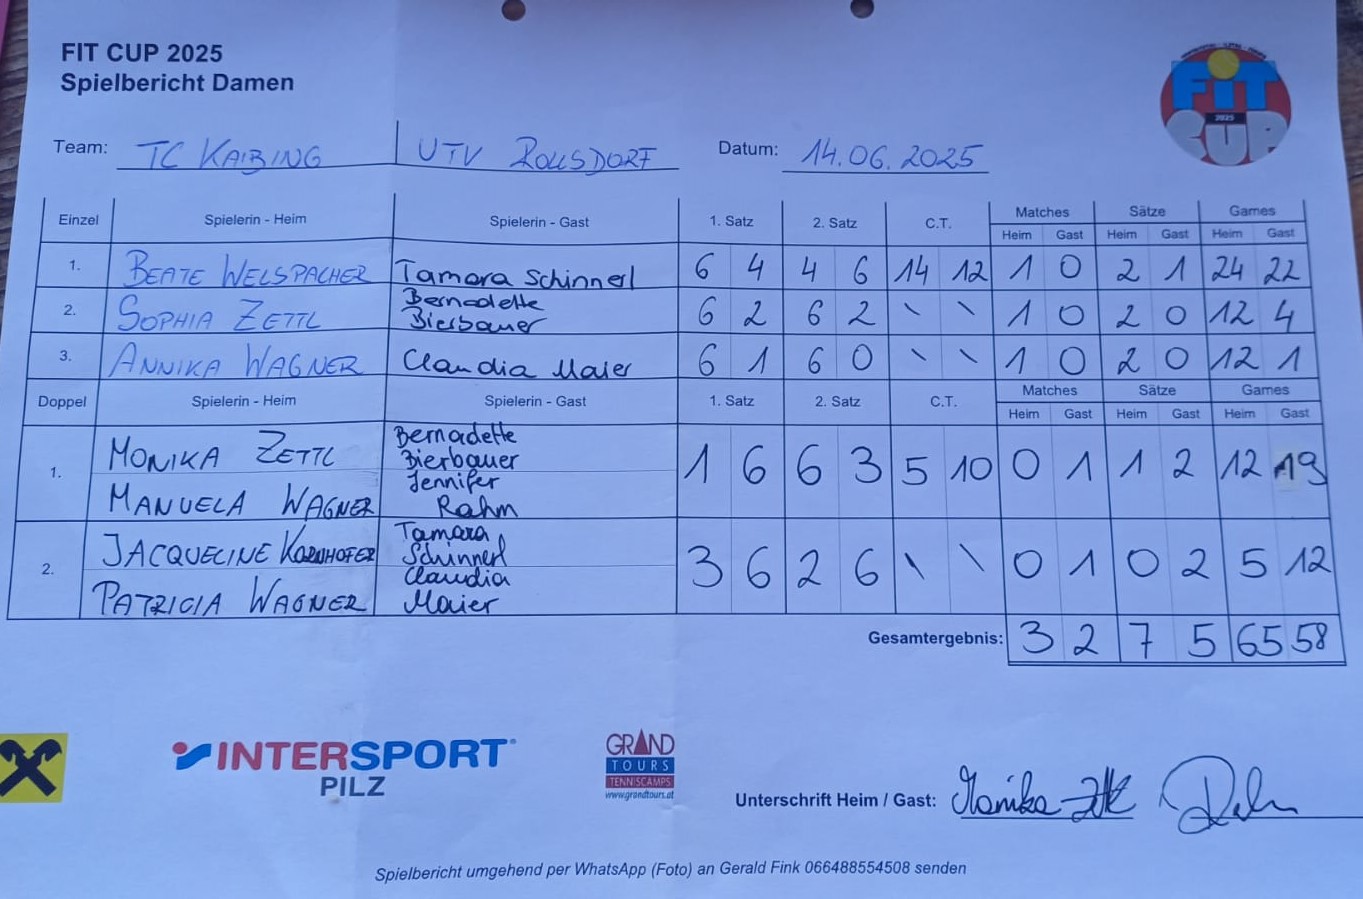 FIT CUP 2025
Spielbericht Damen
FiT
2025
CUP
Team: TC KAIBING UTV ROLLSDORF Datum: 14.06.2025
Einzel Spielerin - Heim Spielerin - Gast 1. Satz 2. Satz C.T. Matches Sätze Games
Heim Gast Heim Gast Heim Gast
1. BEATE WELSPACHER Tamara Schinnerl 6 4 4 6 14 12 1 0 2 1 24 22
2. SOPHIA ZETTL Bernadette Bierbauer 6 2 6 2 \ \ 1 0 2 0 12 4
3. ANNIKA WAGNER Claudia Maier 6 1 6 0 \ \ 1 0 2 0 12 1
Doppel Spielerin - Heim Spielerin - Gast 1. Satz 2. Satz C.T. Matches Sätze Games
Heim Gast Heim Gast Heim Gast
1. MONIKA ZETTL Bernadette Bierbauer 1 6 6 3 5 10 0 1 1 2 12 19
MANUELA WAGNER Jennifer Rahm
2. JACQUELINE Tamara Schinnerl 3 6 2 6 \ \ 0 1 0 2 5 12
PATRICIA WAGNER Claudia Maier
Gesamtergebnis: 3 2 7 5 65 58
INTERSPORT
PILZ
GRAND
TOURS
TENNISCAMPS
www.grandtours.at
Unterschrift Heim / Gast: Monika
Spielbericht umgehend per WhatsApp (Foto) an Gerald Fink 066488554508 senden